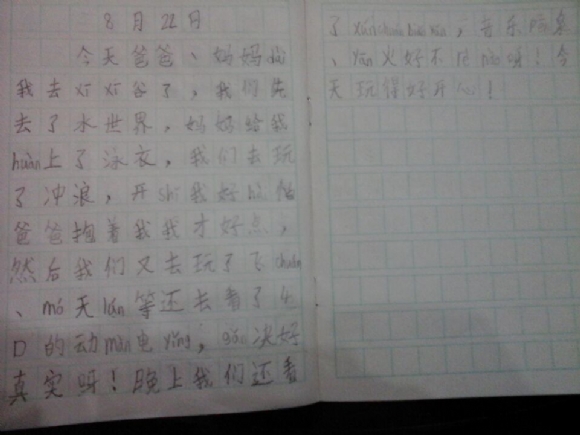 8月22日
今天爸爸、妈妈带
我去欢欢谷了，我们先
去了水世界，妈妈给我
huàn上了泳衣，我们去玩
了冲浪，开shǐ我好怕
爸爸抱着我我才好点，
然后我们又去玩了飞chuán
、mó天lún等还去看了4
D的动màn电yǐng，gǎn决好
真实呀！晚上我们还看
了 ，音乐喷泉
、yān火好不 呀！今
天玩得好开心！